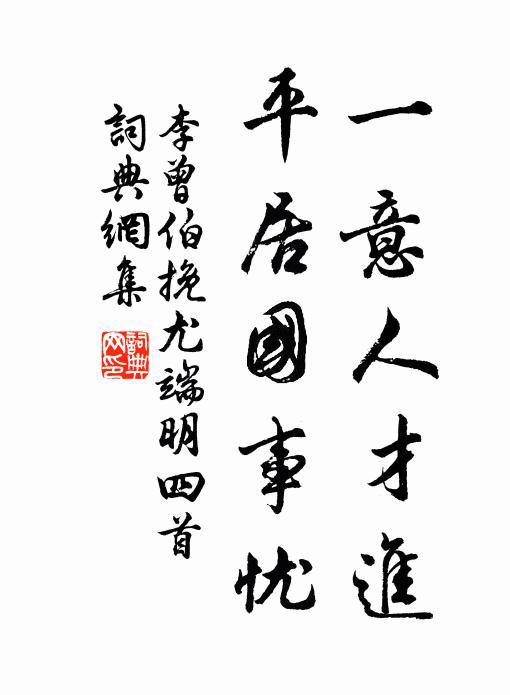 一意人才進
平居國事忧
李曾伯挽尤端明四首
詞典網集
詞典網印